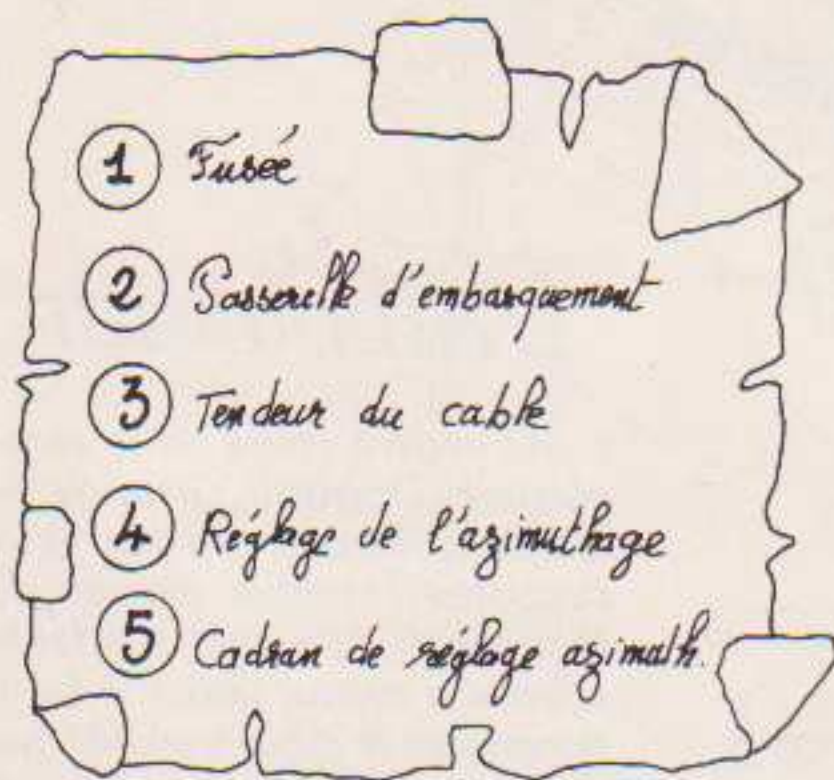 1 Fusée
2 Passerelle d'embarquement
3 Tendeur du cable
4 Réglage de l'azimuthage
5 Cadran de réglage azimuth.